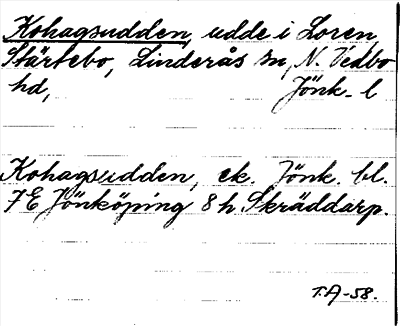 Kohagsudden, udde i Loren,
Stärtebo, Linderås sn, N. Vedbo
hd, Jönk. l
Kohagsudden, ek. Jönk. bl.
7E Jönköping 8 h Skräddarp.
T.A-58.